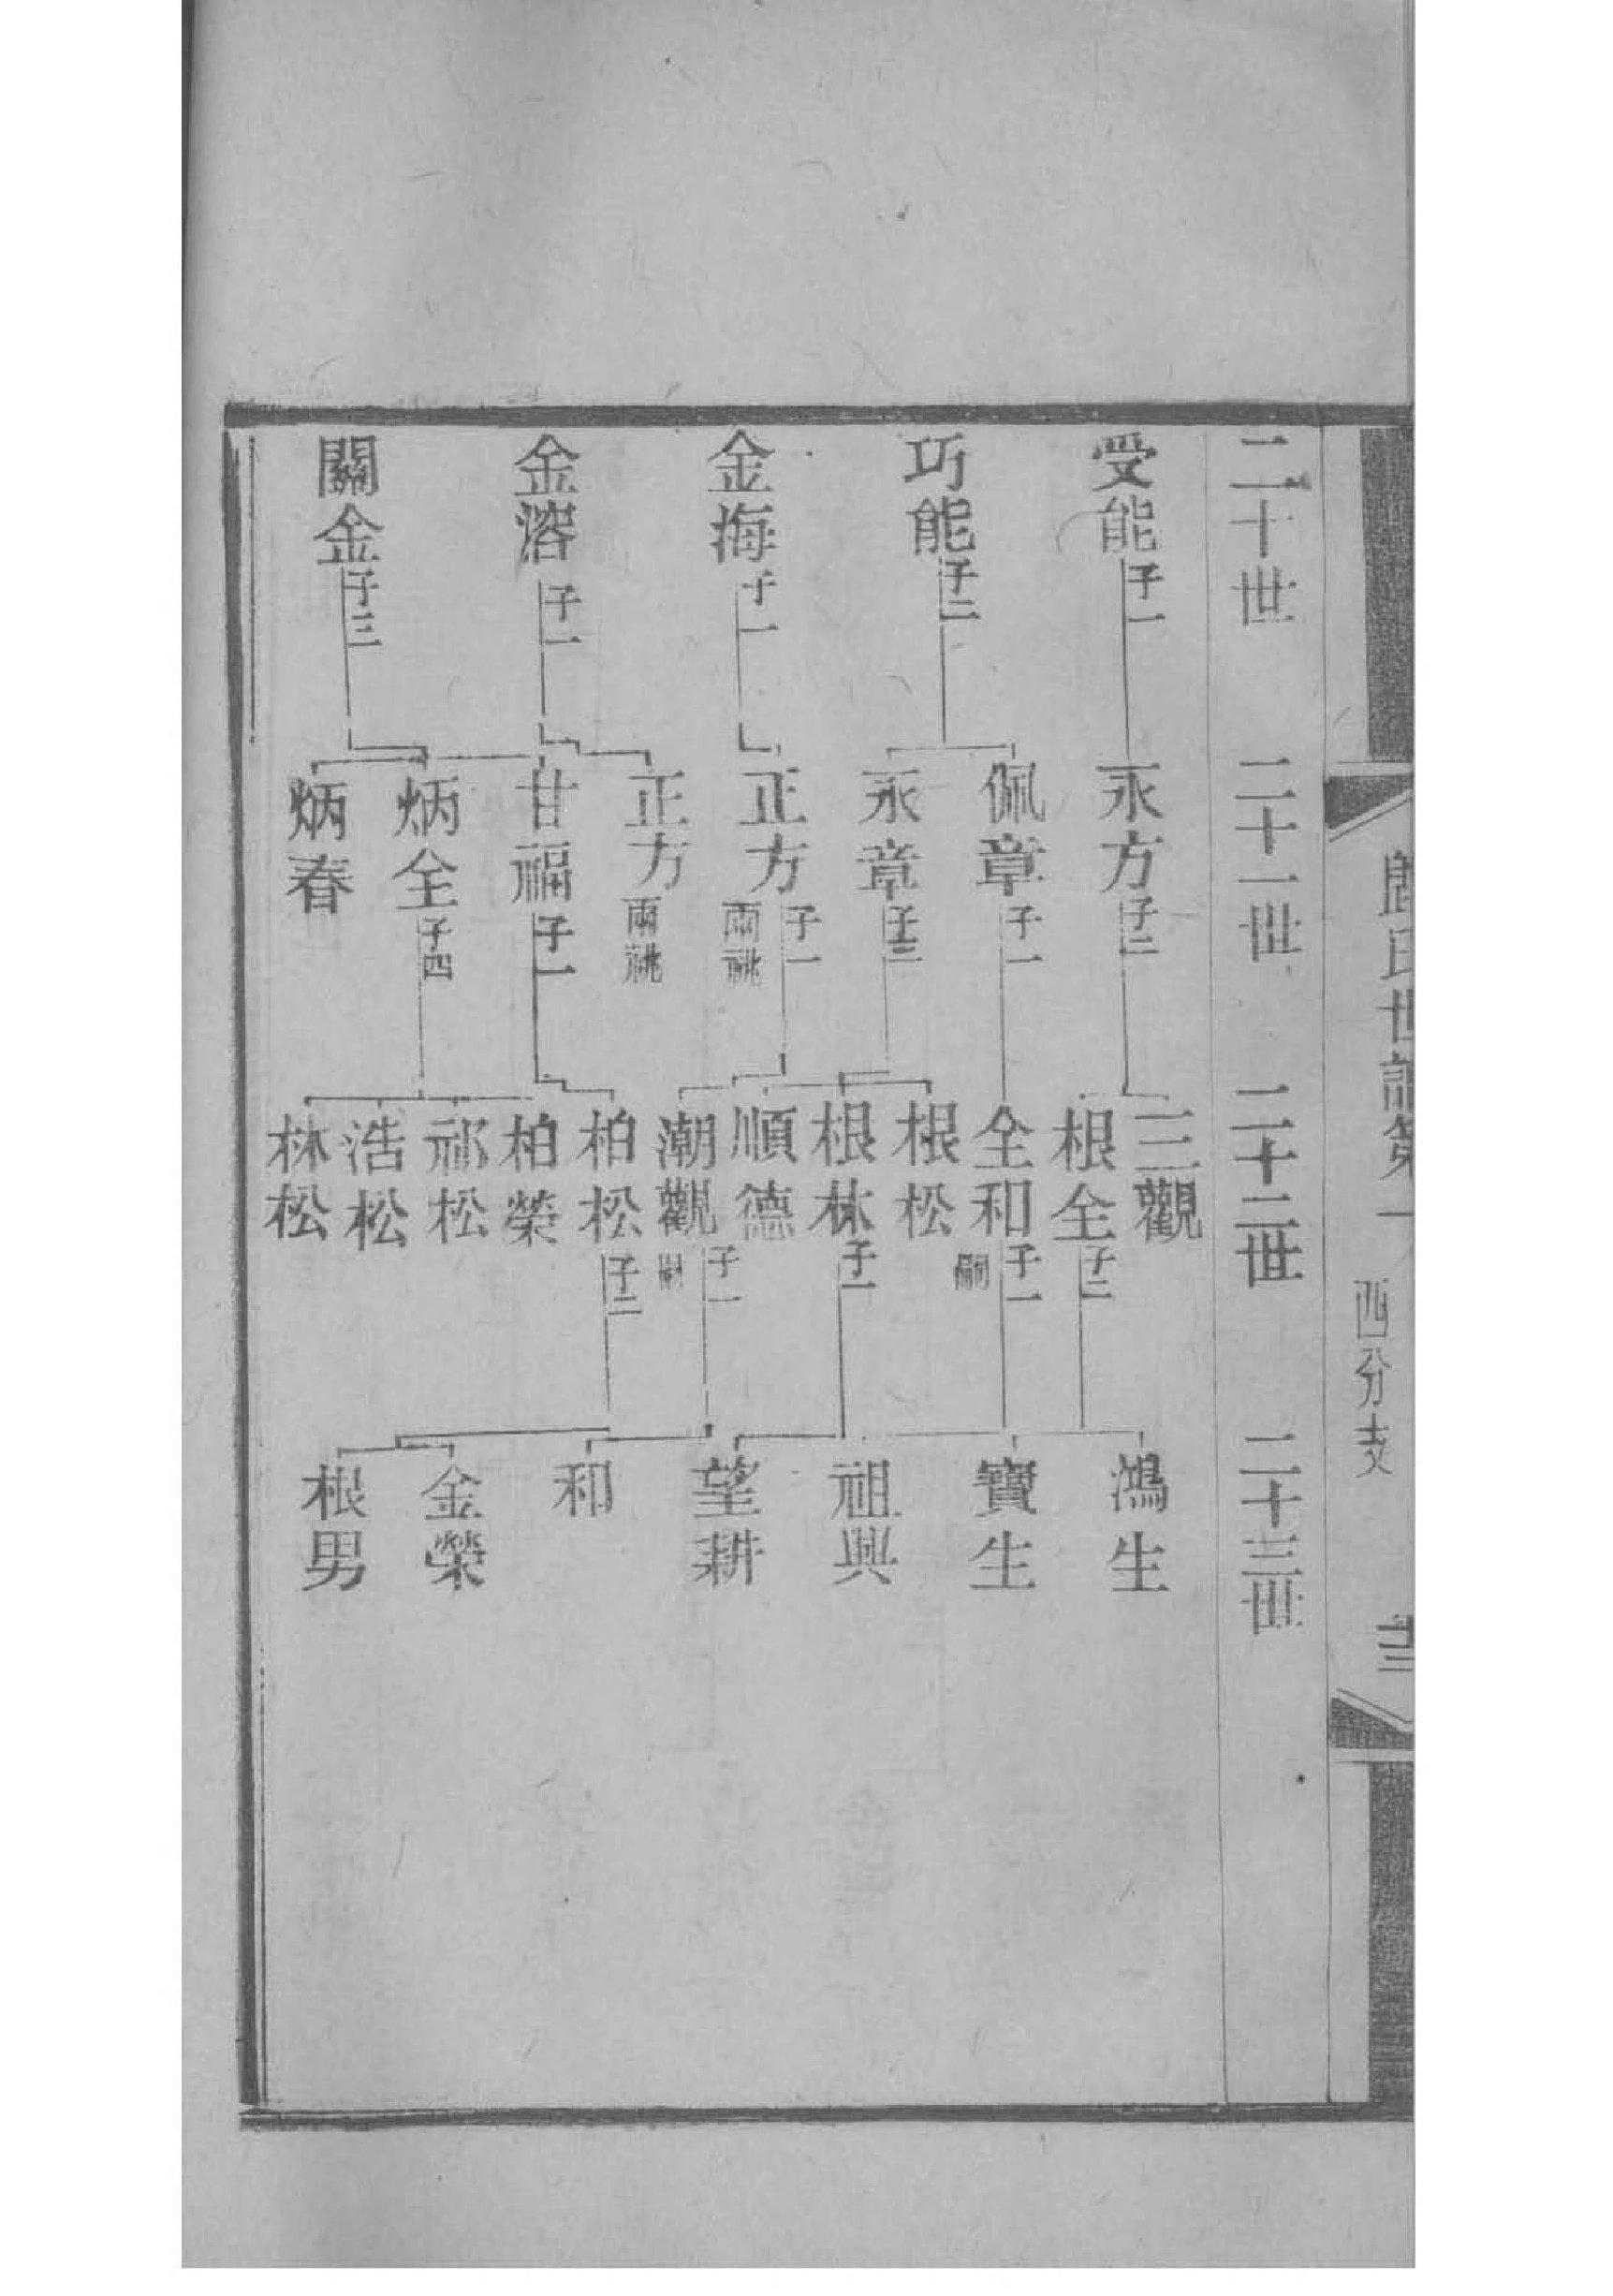 世
第一
西分支
二十世
受能 子一
巧能 子二
金海 子一
金溶 子一
關金 子三
二十一世
永方 子二
佩章 子一
永章 子三
正方 子一 兩祧
正方 兩祧
甘福 子一
炳全 子四
炳春
二十二世
三觀
根全 子二
全和 子一 嗣
根松
根林 子一
順德
潮觀 子一 嗣
柏松 子二
柏榮
祁松
浩松
林松
二十三世
鴻生
寶生
祖興
望耕
和
金榮
根男